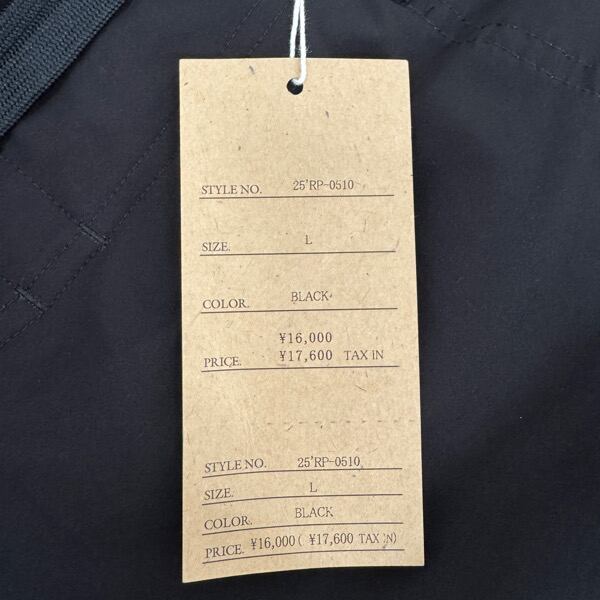 STYLE NO. 25'RP-0510
SIZE. L
COLOR. BLACK
¥16,000
PRICE. ¥17,600 TAX IN
STYLE NO. 25'RP-0510
SIZE. L
COLOR. BLACK
PRICE. ¥16,000( ¥17,600 TAX IN)